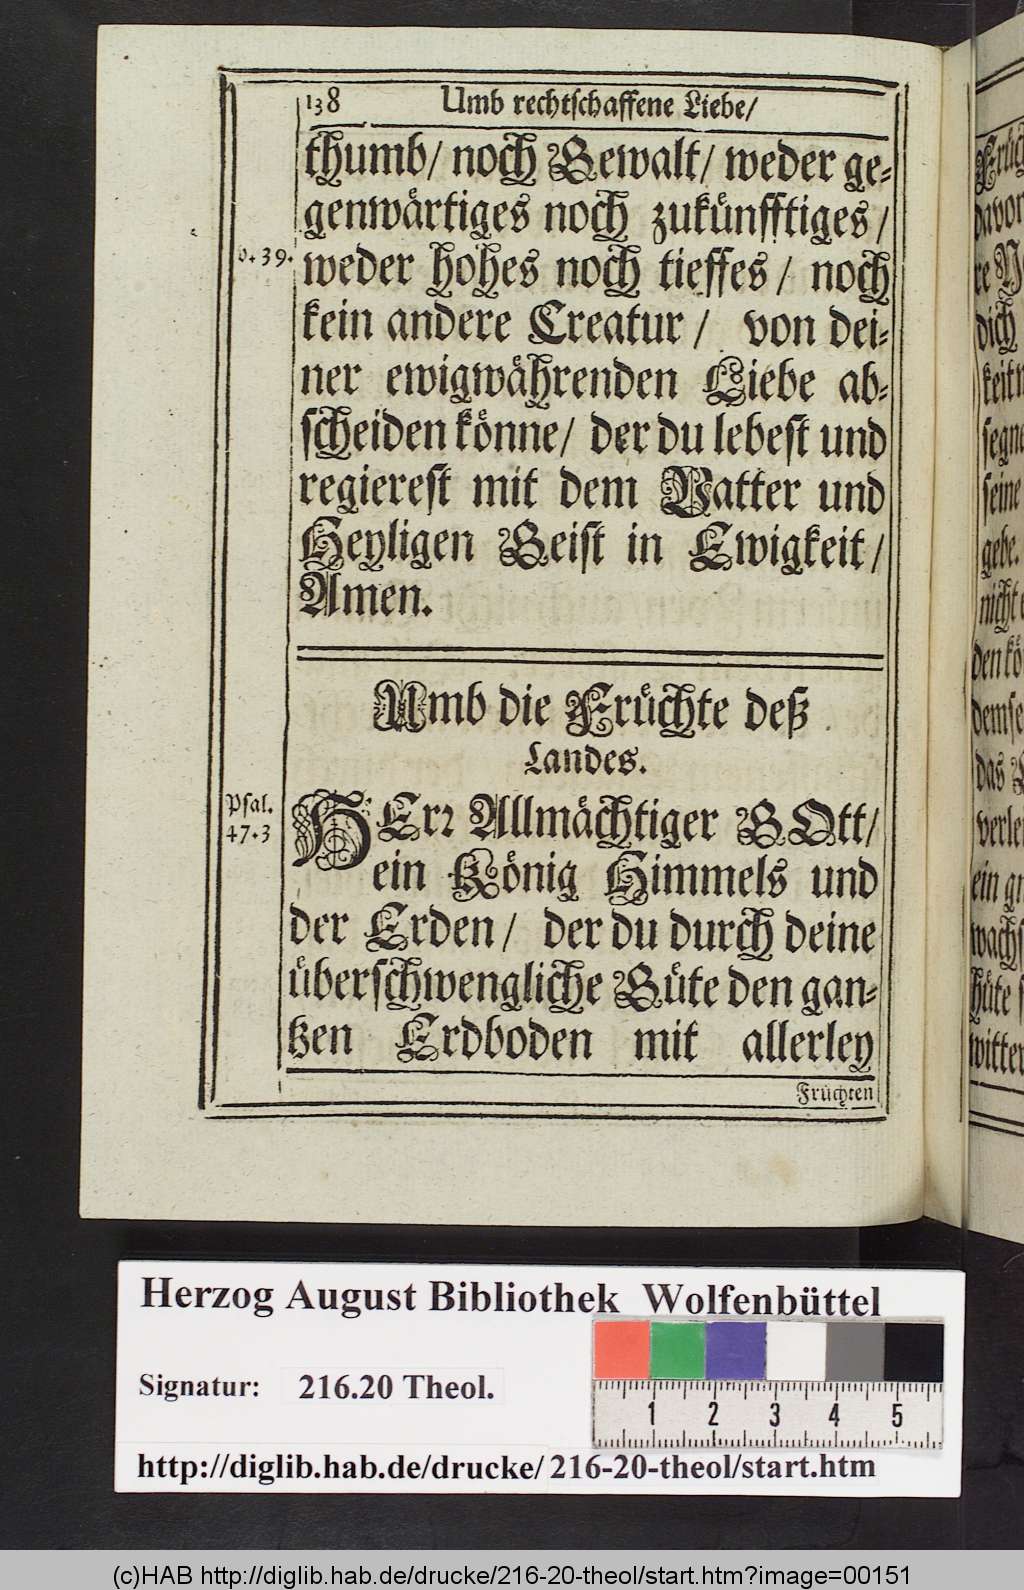 138 Umb rechtschaffene Liebe/
thumb/ noch Gewalt/ weder ge-
genwärtiges noch zukünfftiges/
v. 39.
weder hohes noch tieffes/ noch
kein andere Creatur/ von dei-
ner ewigwährenden Liebe ab-
scheiden könne/ der du lebest und
regierest mit dem Vatter und
Heyligen Geist in Ewigkeit/
Amen.
Umb die Früchte deß
Landes.
Psal.
47. 3
HErr Allmächtiger GOtt/
ein König Himmels und
der Erden/ der du durch deine
überschwengliche Güte den gan-
tzen Erdboden mit allerley
Früchten
davor
dich
segne
seine
gebe.
nicht
den kö
demse
das
verlei
ein gn
wachs
hüte s
witter
Herzog August Bibliothek Wolfenbüttel
Signatur: 216.20 Theol.
1 2 3 4 5
http://diglib.hab.de/drucke/216-20-theol/start.htm
(c)HAB http://diglib.hab.de/drucke/216-20-theol/start.htm?image=00151